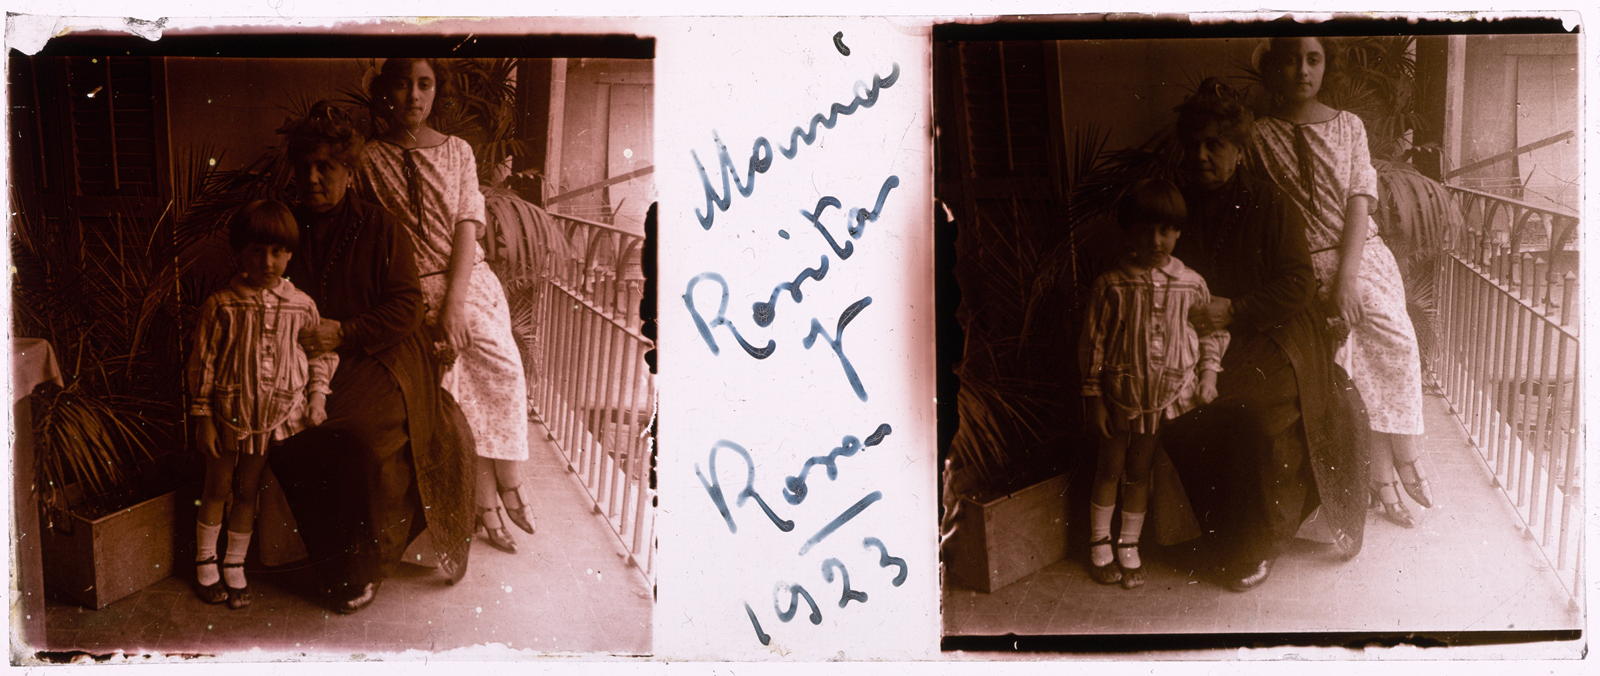 Mamá
Rosita
y
Rosa
1923